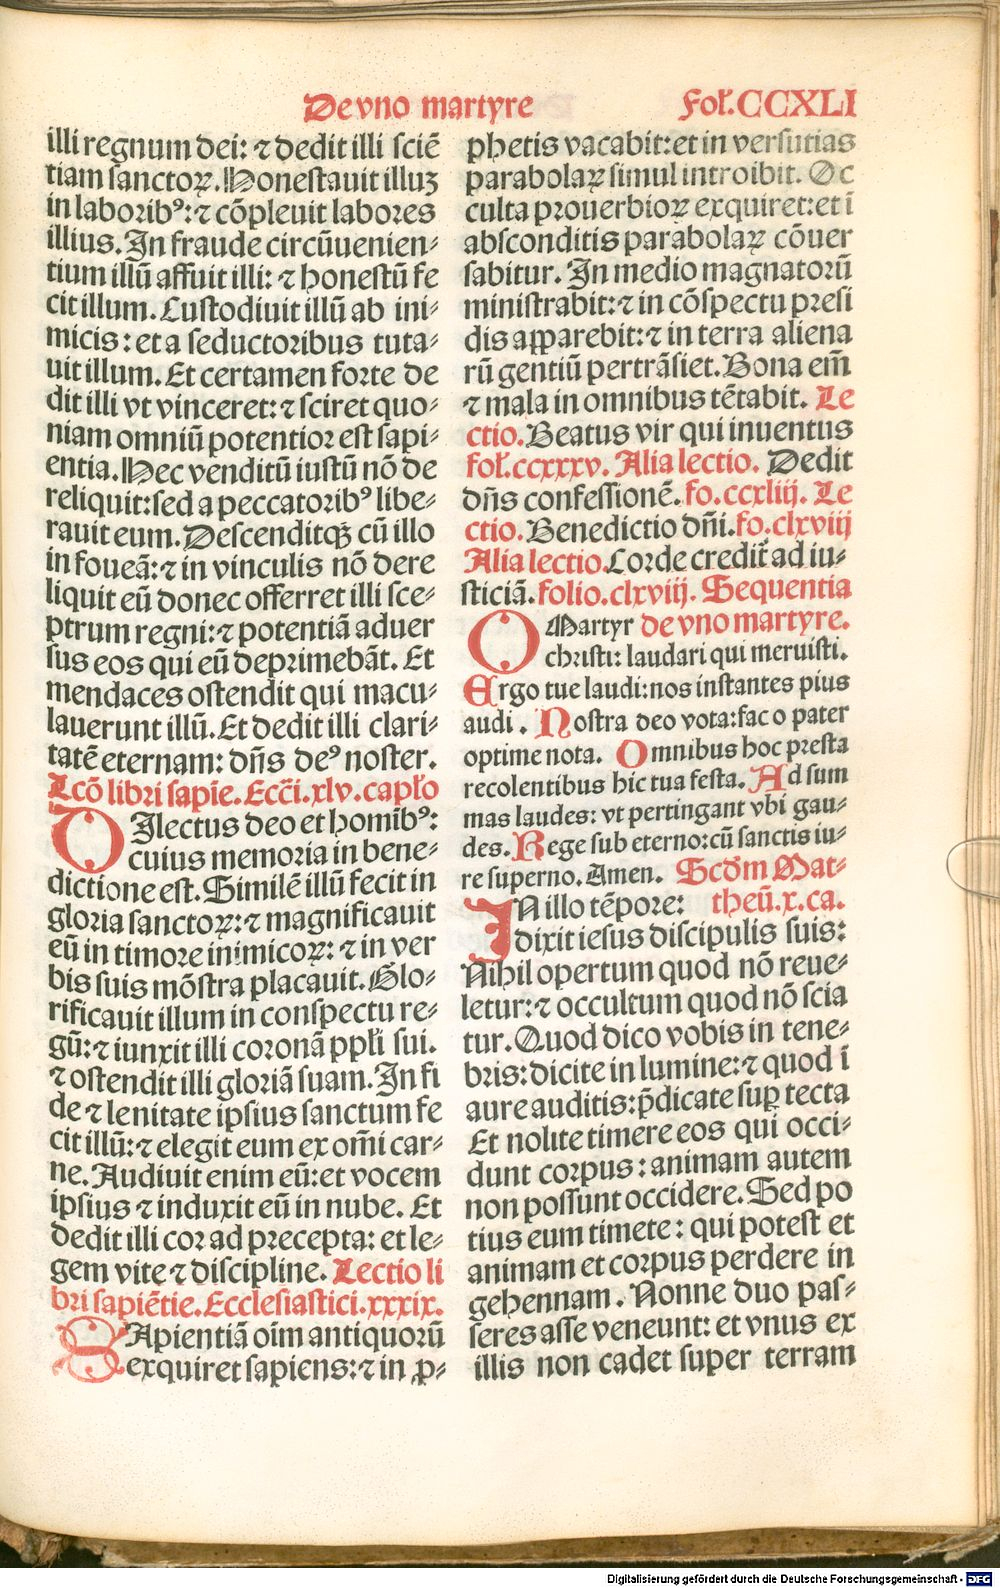 De vno martyre
Fol.CCXLI
illi regnum dei: ⁊ dedit illi sciē
tiam sanctoꝝ. Honestauit illuꝫ
in laborib⁹: ⁊ cōpleuit labores
illius. In fraude circūuenien⸗
tium illū affuit illi: ⁊ honestū fe
cit illum. Custodiuit illū ab ini⸗
micis: et a seductoribus tuta⸗
uit illum. Et certamen forte de
dit illi vt vinceret: ⁊ sciret quo⸗
niam omniū potentior est sapi⸗
entia. Hec venditū iustū nō de
reliquit: sed a peccatorib⁹ libe⸗
rauit eum. Descenditqꝫ cū illo
in foueā: ⁊ in vinculis nō dere
liquit eū donec offerret illi sce⸗
ptrum regni: ⁊ potentiā aduer
sus eos qui eū deprimebāt. Et
mendaces ostendit qui macu⸗
lauerunt illū. Et dedit illi clari⸗
tatē eternam: dn̄s de⁹ noster.
Lcō libri sapiē. Ecc̄i.xlv.capl̄o
DIlectus deo et homib⁹:
cuius memoria in bene⸗
dictione est. Similē illū fecit in
gloria sanctoꝝ: ⁊ magnificauit
eū in timore inimicoꝝ: ⁊ in ver
bis suis mōstra placauit. Glo⸗
rificauit illum in conspectu re⸗
gū: ⁊ iunxit illi coronā ppl̄i sui.
⁊ ostendit illi gloriā suam. In fi
de ⁊ lenitate ipsius sanctum fe
cit illū: ⁊ elegit eum ex om̄i car⸗
ne. Audiuit enim eū: et vocem
ipsius ⁊ induxit eū in nube. Et
dedit illi cor ad precepta: et le⸗
gem vite ⁊ discipline. Lectio li
bri sapiētie. Ecclesiastici.xxxix.
SApientiā oīm antiquorū
exquiret sapiens: ⁊ in ꝓ⸗
phetis vacabit: et in versutias
parabolaꝝ simul introibit. Oc
culta prouerbioꝝ exquiret: et ī
absconditis parabolaꝝ cōuer
sabitur. In medio magnatorū
ministrabit: ⁊ in cōspectu presi
dis apparebit: ⁊ in terra aliena
rū gentiū pertrāsiet. Bona em̄
⁊ mala in omnibus tētabit. Le
ctio. Beatus vir qui inuentus
fol.ccxxxv. Alia lectio. Dedit
dn̄s confessionē. fo.ccxliij. Le
ctio. Benedictio dn̄i. fo.clxviij
Alia lectio. Corde credit̄ ad iu⸗
sticiā. folio.clxviij. Sequentia
O Martyr de vno martyre.
christi: laudari qui meruisti.
Ergo tue laudi: nos instantes pius
audi. Nostra deo vota: fac o pater
optime nota. Omnibus hoc presta
recolentibus hic tua festa. Ad sum
mas laudes: vt pertingant vbi gau⸗
des. Rege sub eterno: cū sanctis iu⸗
re superno. Amen. Scd̄m Mat⸗
IN illo tēpore: theū.x.ca.
dixit iesus discipulis suis:
Nihil opertum quod nō reue⸗
letur: ⁊ occultum quod nō scia
tur. Quod dico vobis in tene⸗
bris: dicite in lumine: ⁊ quod ī
aure auditis: p̄dicate suꝑ tecta
Et nolite timere eos qui occi⸗
dunt corpus: animam autem
non possunt occidere. Sed po
tius eum timete: qui potest et
animam et corpus perdere in
gehennam. Nonne duo pas⸗
seres asse veneunt: et vnus ex
illis non cadet super terram
Digitalisierung gefördert durch die Deutsche Forschungsgemeinschaft - DFG